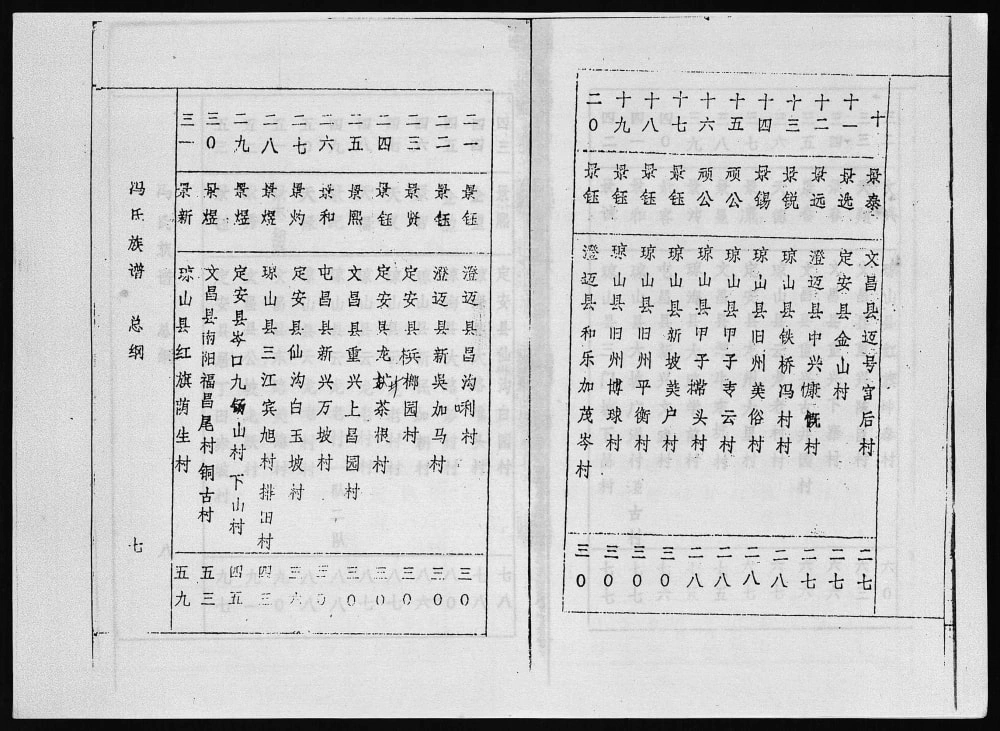 十 景泰 文昌县迈号官后村 二七
十一 景选 定安县金山村 二七
十二 景远 澄迈县中兴慷慨村 二七
十三 景锐 琼山县铁桥冯村 二八
十四 景锡 琼山县旧州美俗村 二八
十五 顽公 琼山县甲子村 二八
十六 顽公 琼山县甲子头村 二八
十七 景钰 琼山县新坡美户村 三0
十八 景钰 琼山县旧州平衡村 三0
十九 景钰 琼山县旧州博球村 三0
二0 景钰 澄迈县和乐加茂岑村 三0
二一 景钰 澄迈县昌沟唎村 三0
二二 景钰 澄迈县新吳加马村 三0
二三 景贤 定安县槟榔园村 三0
二四 景钰 定安县龙茶根村 三0
二五 景熙 文昌县重兴上昌园村 三0
二六 景和 屯昌县新兴万坡村 三0
二七 景灼 定安县仙沟白玉坡村 三六
二八 景煜 琼山县三江宾旭村排田村 四三
二九 景煜 定安县岑口九山村下山村 四五
三0 景煜 文昌县南阳福昌尾村铜古村 五三
三一 景新 琼山县红旗荫生村 五九
冯氏族谱 总纲 七